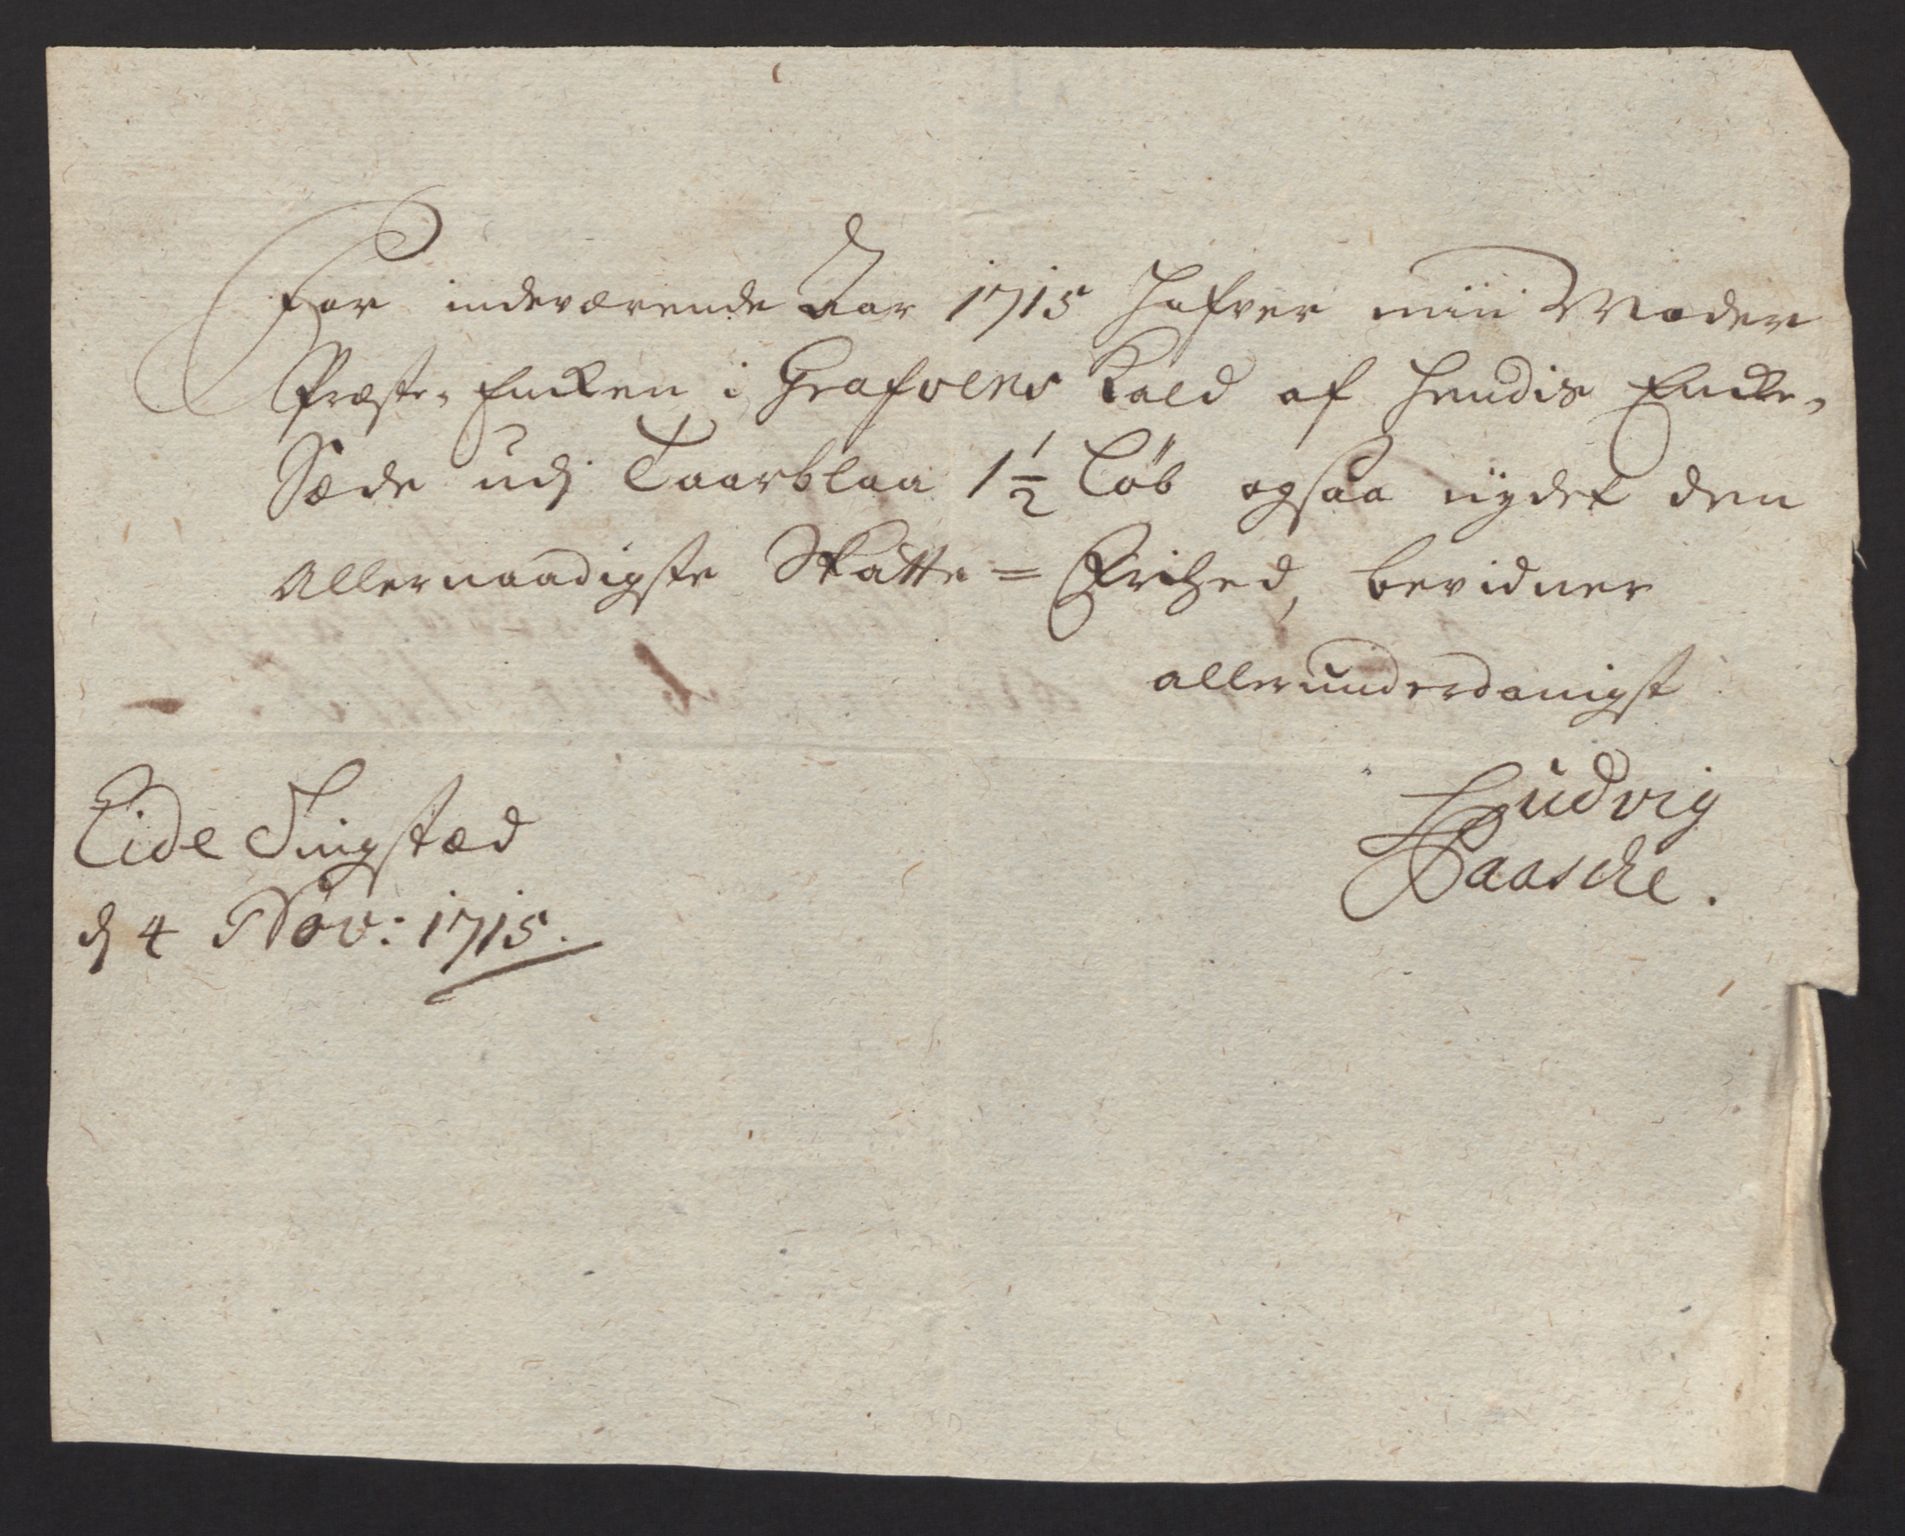 For indeværende Aar 1715 hafver min Moder
Præste-Encken i Grafvens Kald af hendis Encke-
Sæde udj Taarblaa 1½ Løb ogsaa nydet den
Allernaadigste Skatte = Frihed, bevidner
allerunderdanigst
Ludvig
Paasche.
Eide Tingstæd
d 4 Nov: 1715.